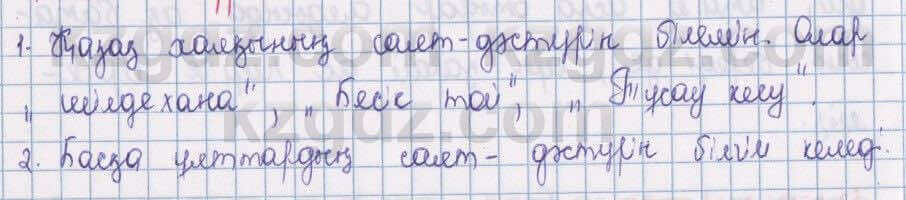 1. Қазақ халқының салт-дәстүрін білемін. Олар
„шілдехана", „Бесік той", „Тұсау кесу".
2. Басқа ұлттардың салт-дәстүрін білгім келеді.
kzgdz.com kzgdz.com
kzgdz.com